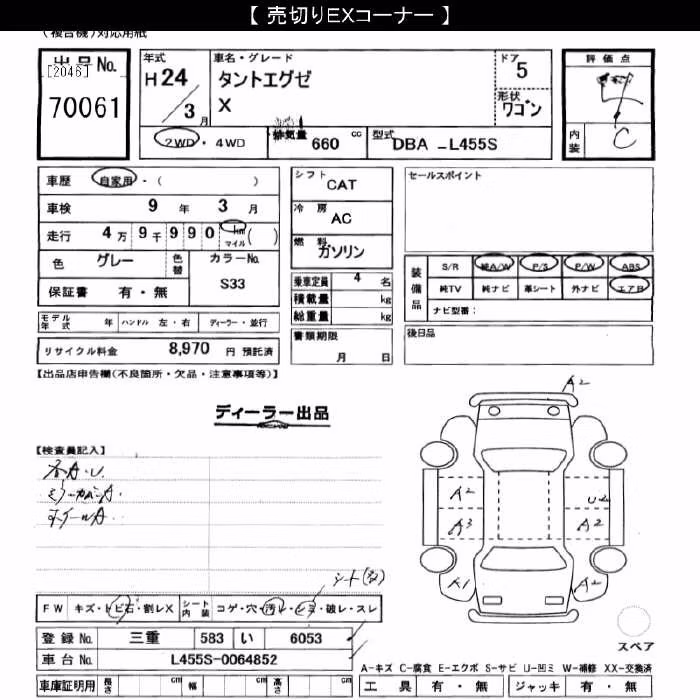 【 売切りEXコーナー 】
(複合機)対応用紙
出品No.
[2046]
70061
年式
H24
3月
車名・グレード
タントエグゼ
X
ドア
5
形状
ワゴン
評価点
内装
C
2WD・4WD
排気量
660 cc
型式
DBA -L455S
車歴 自家用・( )
車検 9年 3月
走行 4万9千990 km マイル ( )
色 グレー 色替
カラーNo.
S33
保証書 有・無
シフト
CAT
冷房
AC
燃料
ガソリン
乗車定員 4名
積載量 kg
総重量 kg
書類期限
月 日
セールスポイント
装備品
S/R 純A/W P/S P/W ABS
純TV 純ナビ 革シート 外ナビ エアB
ナビ型番:
後日品
モデル年式 年 ハンドル 左・右 ディーラー・並行
リサイクル料金 8,970 円 預託済
【出品店申告欄(不良箇所・欠品・注意事項等)】
ディーラー出品
【検査員記入】
A2
A2
U2
A3
A2
A1
A2
FW キズ・トビ石・割レX
シート内装 コゲ・穴・汚レ・シミ・破レ・スレ
登録No. 三重 583 い 6053
車台No. L455S-0064852
スペア
A-キズ C-腐食 E-エクボ S-サビ U-凹ミ W-補修 XX-交換済
車庫証明用 長さ cm 幅 cm 高さ cm
工具 有・無 ジャッキ 有・無